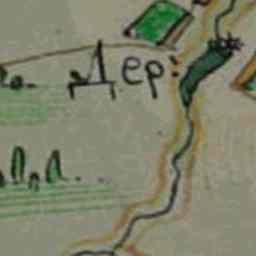 Дер: